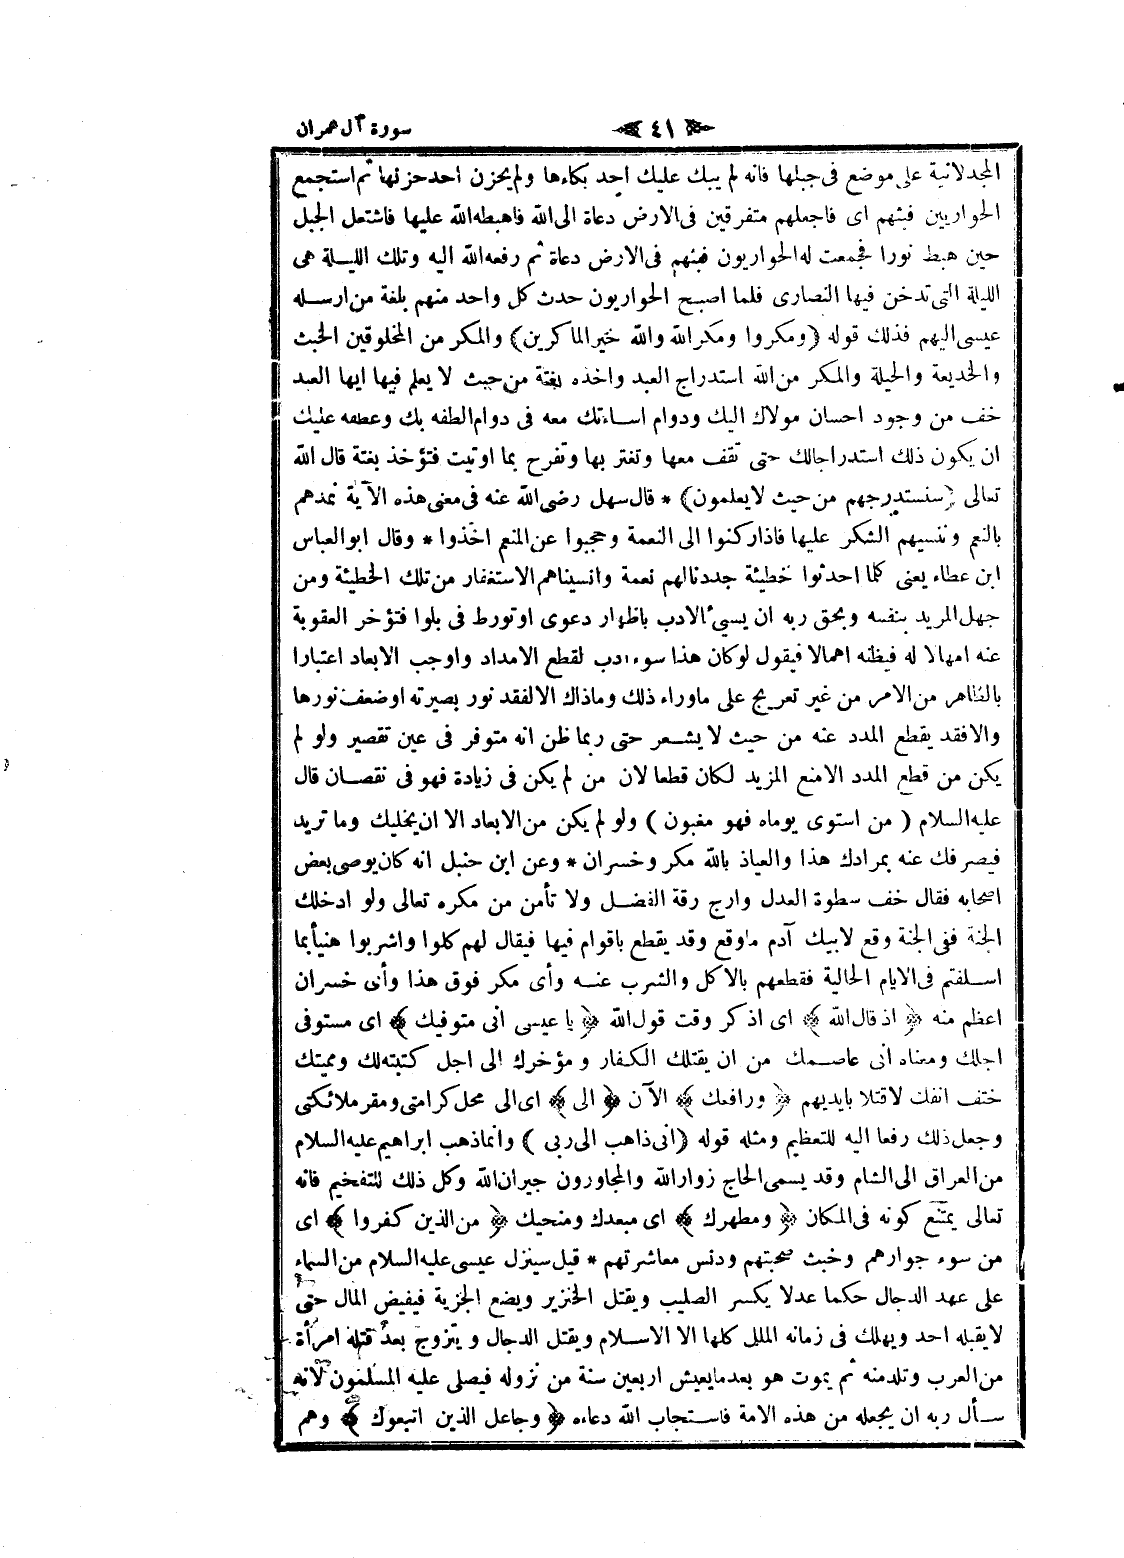 سورة آل عمران
٤١
المجدلانية على موضع فى جبلها فانه لم يبك عليك احد بكاءها ولم يحزن احد حزنها ثم استجمع
الحواريين فبثهم اى فاجعلهم متفرقين فى الارض دعاة الى الله فاهبطه الله عليها فاشتعل الجبل
حين هبط نورا فجمعت له الحواريون فبثهم فى الارض دعاة ثم رفعه الله اليه وتلك الليلة هى
الليلة التى تدخن فيها النصارى فلما اصبح الحواريون حدث كل واحد منهم بلغة من ارسله
عيسى اليهم فذلك قوله (ومكروا ومكر الله والله خير الماكرين) والمكر من المخلوقين الخبث
والخديعة والحيلة والمكر من الله استدراج العبد واخذه بغتة من حيث لا يعلم فيها ايها العبد
خف من وجود احسان مولاك اليك ودوام اساءتك معه فى دوام الطفه بك وعطفه عليك
ان يكون ذلك استدراجالك حتى تقف معها وتغتر بها وتفرح بما اوتيت فتؤخذ بغتة قال الله
تعالى (سنستدرجهم من حيث لا يعلمون) * قال سهل رضى الله عنه فى معنى هذه الآية نمدهم
بالنعم وننسيهم الشكر عليها فاذا ركنوا الى النعمة وحجبوا عن المنعم اخذوا * وقال ابو العباس
ابن عطاء يعنى كلما احدثوا خطيئة جددنالهم نعمة وانسيناهم الاستغفار من تلك الخطيئة ومن
جهل المريد بنفسه وبحق ربه ان يسيئ الادب باظهار دعوى او تورط فى بلوا فتؤخر العقوبة
عنه امهالا له فيظنه اهمالا فيقول لو كان هذا سوء ادب لقطع الامداد واوجب الابعاد اعتبارا
بالظاهر من الامر من غير تعريج على ماوراء ذلك وماذاك الا لفقد نور بصيرته او ضعف نورها
والافقد يقطع المدد عنه من حيث لا يشعر حتى ربما ظن انه متوفر فى عين تقصير ولو لم
يكن من قطع المدد الامنع المزيد لكان قطعا لان من لم يكن فى زيادة فهو فى نقصان قال
عليه السلام ( من استوى يوماه فهو مغبون ) ولو لم يكن من الابعاد الا ان يخليك وما تريد
فيصرفك عنه بمرادك هذا والعياذ بالله مكر وخسران * وعن ابن حنبل انه كان يوصى بعض
اصحابه فقال خف سطوة العدل وارج رقة الفضل ولا تأمن من مكره تعالى ولو ادخلك
الجنة ففى الجنة وقع لابيك آدم ماوقع وقد يقطع باقوام فيها فيقال لهم كلوا واشربوا هنيأ بما
اسلفتم فى الايام الخالية فقطعهم بالاكل والشرب عنه وأى مكر فوق هذا وأى خسران
اعظم منه ﴿ اذ قال الله ﴾ اى اذكر وقت قول الله ﴿ يا عيسى انى متوفيك ﴾ اى مستوفى
اجلك ومعناه انى عاصمك من ان يقتلك الكفار و مؤخرك الى اجل كتبته لك ومميتك
حتف انفك لا قتلا بايديهم ﴿ ورافعك ﴾ الآن ﴿ الى ﴾ اى الى محل كرامتى ومقر ملائكتى
وجعل ذلك رفعا اليه للتعظيم ومثله قوله (انى ذاهب الى ربى ) وانماذهب ابراهيم عليه السلام
من العراق الى الشام وقد يسمى الحاج زوار الله والمجاورون جيران الله وكل ذلك للتفخيم فانه
تعالى يمتنع كونه فى المكان ﴿ ومطهرك ﴾ اى مبعدك ومنحيك ﴿ من الذين كفروا ﴾ اى
من سوء جوارهم وخبث صحبتهم ودنس معاشرتهم * قيل سينزل عيسى عليه السلام من السماء
على عهد الدجال حكما عدلا يكسر الصليب ويقتل الخنزير ويضع الجزية فيفيض المال حتى
لا يقبله احد ويهلك فى زمانه الملل كلها الا الاسلام ويقتل الدجال و يتزوج بعد قتله امرأة
من العرب وتلد منه ثم يموت هو بعد ما يعيش اربعين سنة من نزوله فيصلى عليه المسلمون لانه
سأل ربه ان يجعله من هذه الامة فاستجاب الله دعاءه ﴿ وجاعل الذين اتبعوك ﴾ وهم